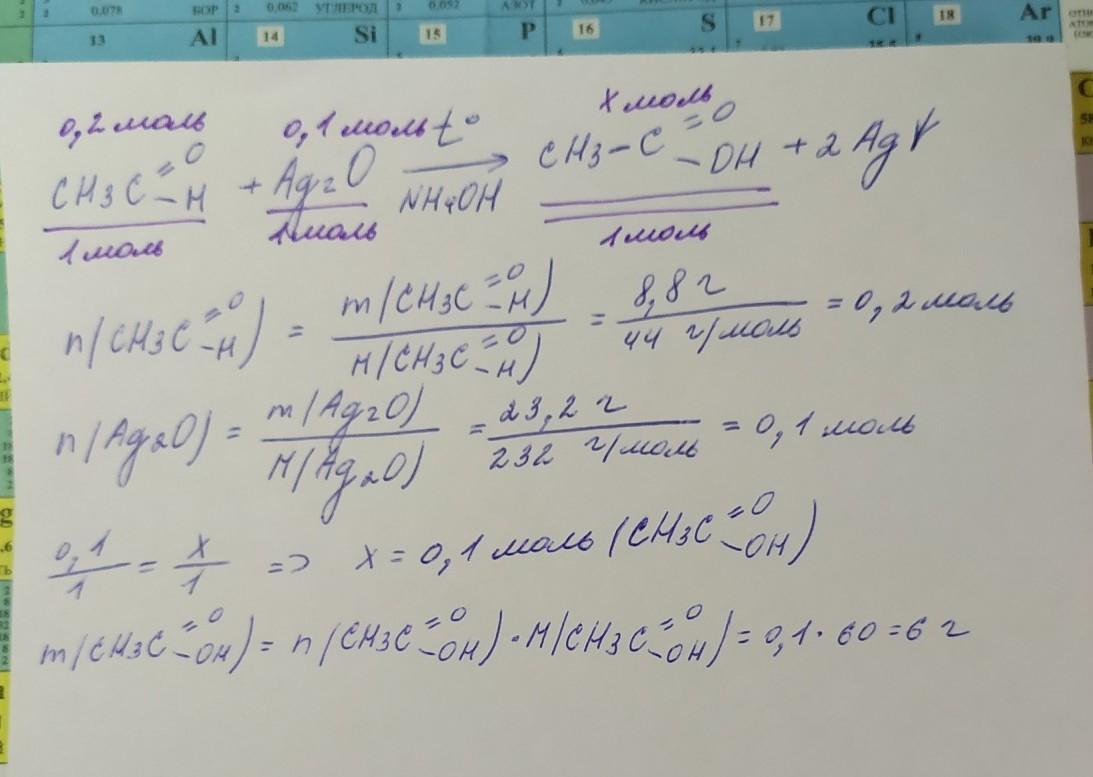 0,078 БОР 2 0,062 УГЛЕРОД 2 0,052 АЗОТ
13 Al 14 Si 15 P 16 S 17 Cl 18 Ar
0,2 моль 0,1 моль t° x моль
CH3C=O-H + Ag2O → NH4OH CH3-C=O-OH + 2Ag↓
1 моль 1 моль 1 моль
n(CH3C=O-H) = m(CH3C=O-H) / M(CH3C=O-H) = 8,8 г / 44 г/моль = 0,2 моль
n(Ag2O) = m(Ag2O) / M(Ag2O) = 23,2 г / 232 г/моль = 0,1 моль
0,1/1 = x/1 => x = 0,1 моль (CH3C=O-OH)
m(CH3C=O-OH) = n(CH3C=O-OH) · M(CH3C=O-OH) = 0,1 · 60 = 6 г